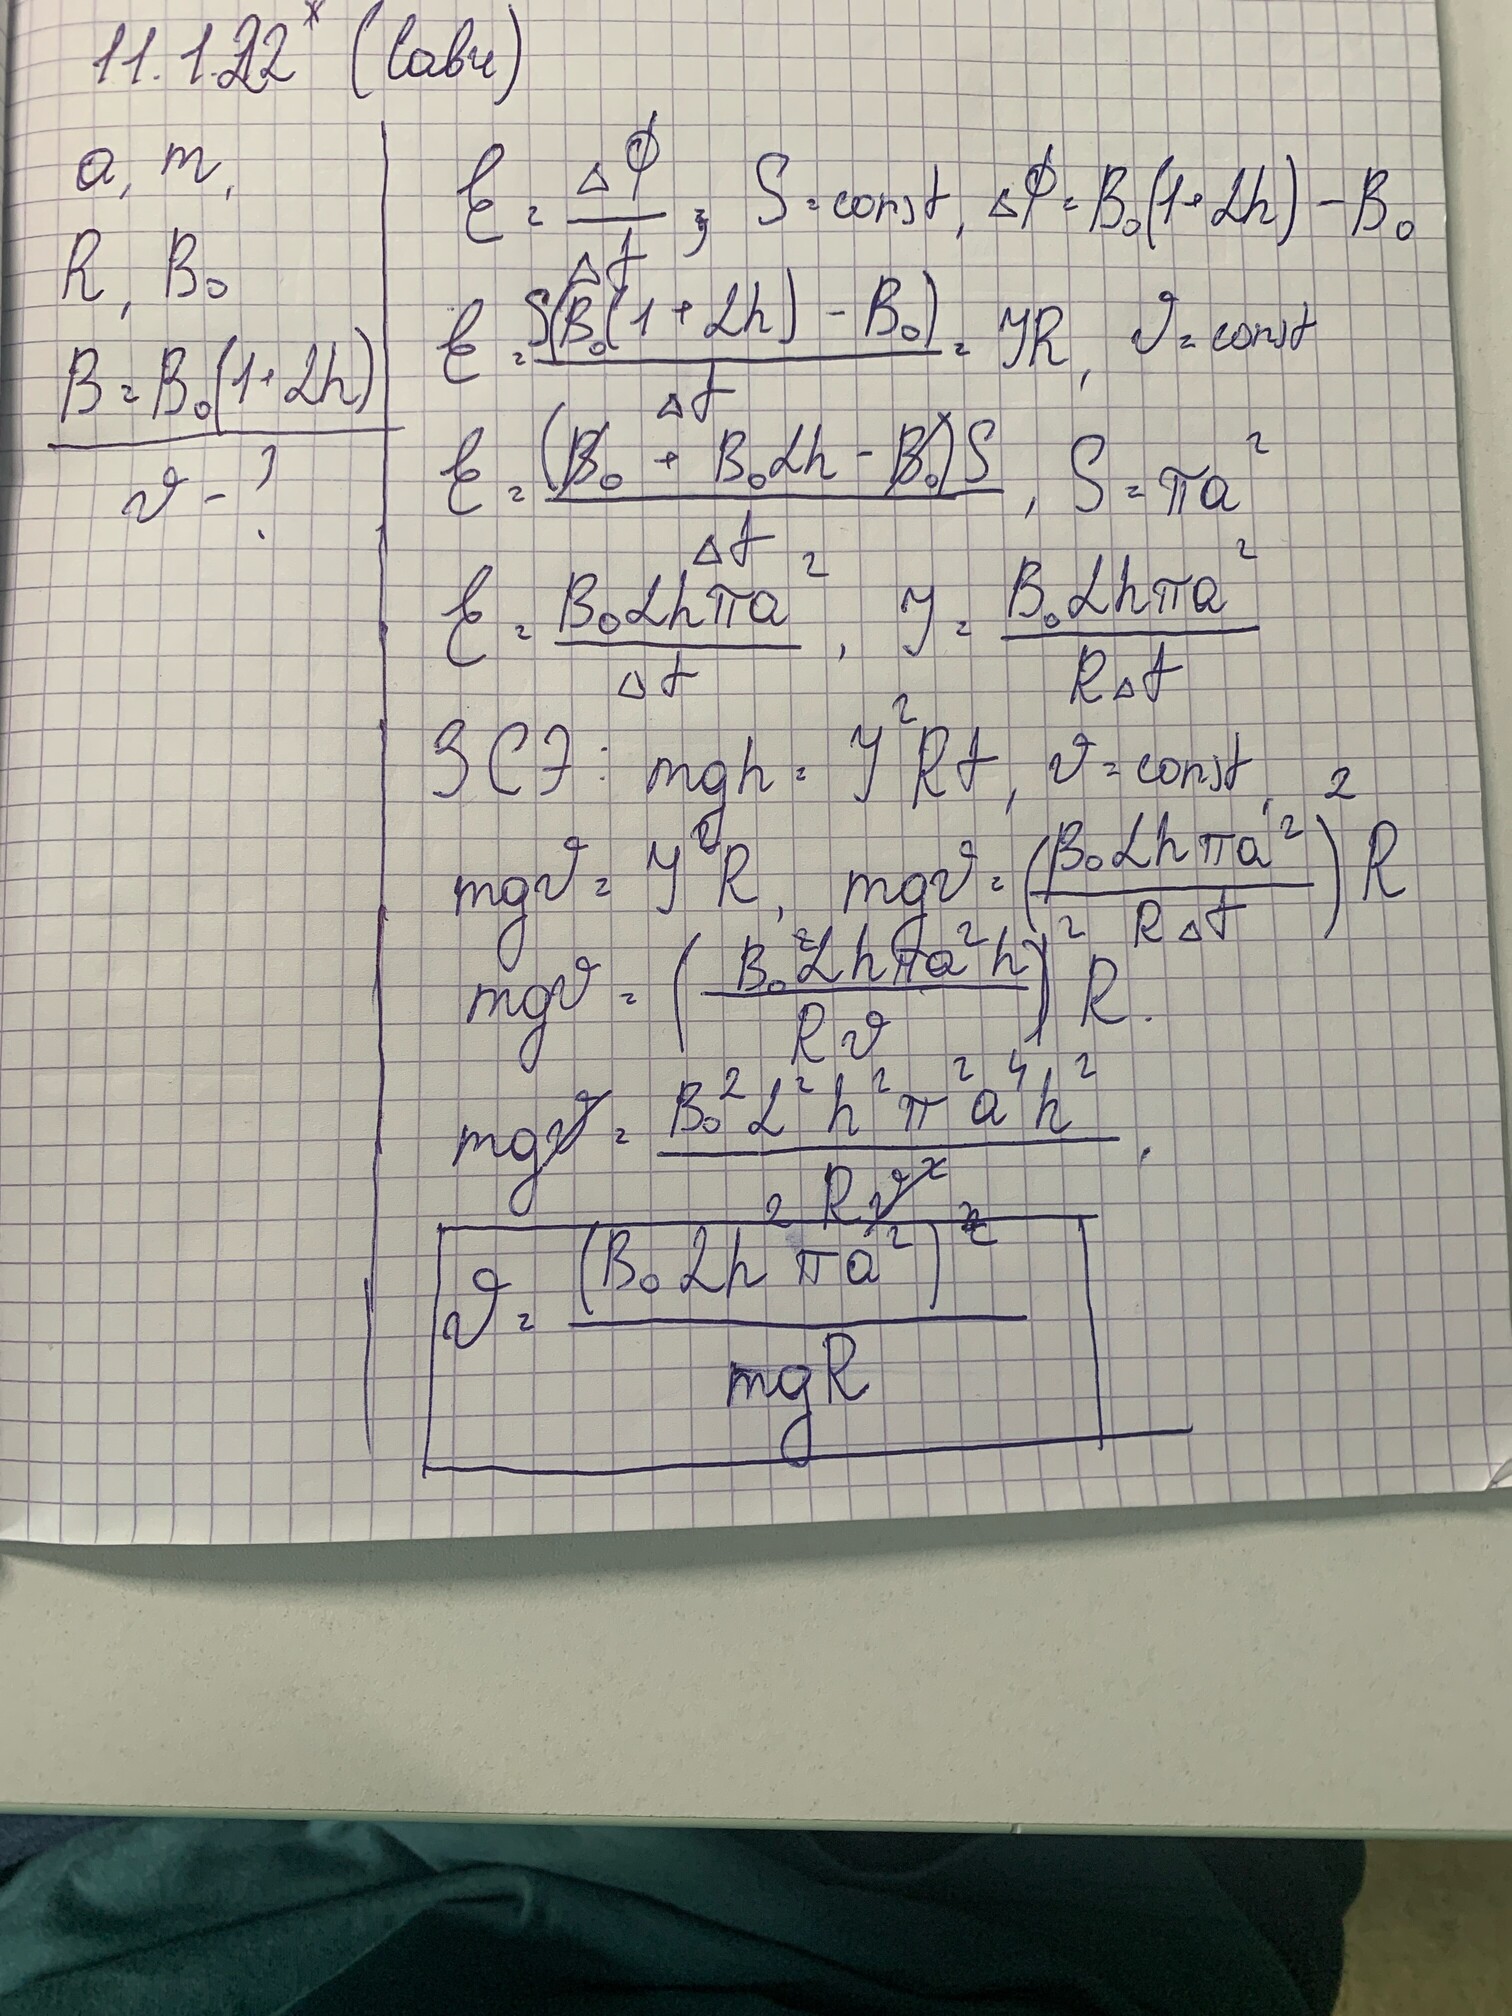 11.1.22* (Савч)
a, m,
R, B₀
B = B₀(1+αh)
v - ?
ℰ = ΔΦ/Δt ; S = const, ΔΦ = B₀(1+αh) - B₀
ℰ = S(B₀(1+αh) - B₀)/Δt = IR, v = const
ℰ = (B₀ + B₀αh - B₀)S/Δt, S = πa²
ℰ = B₀αhπa²/Δt, I = B₀αhπa²/RΔt
ЗСЭ: mgh = I²Rt, v = const,
mgv = I²R, mgv = (B₀αhπa²/RΔt)²R
mgv = (B₀αhπa²h/Rv)²R.
mgv = B₀²α²h²π²a⁴h²/Rv²,
v = (B₀αhπa²)²/mgR